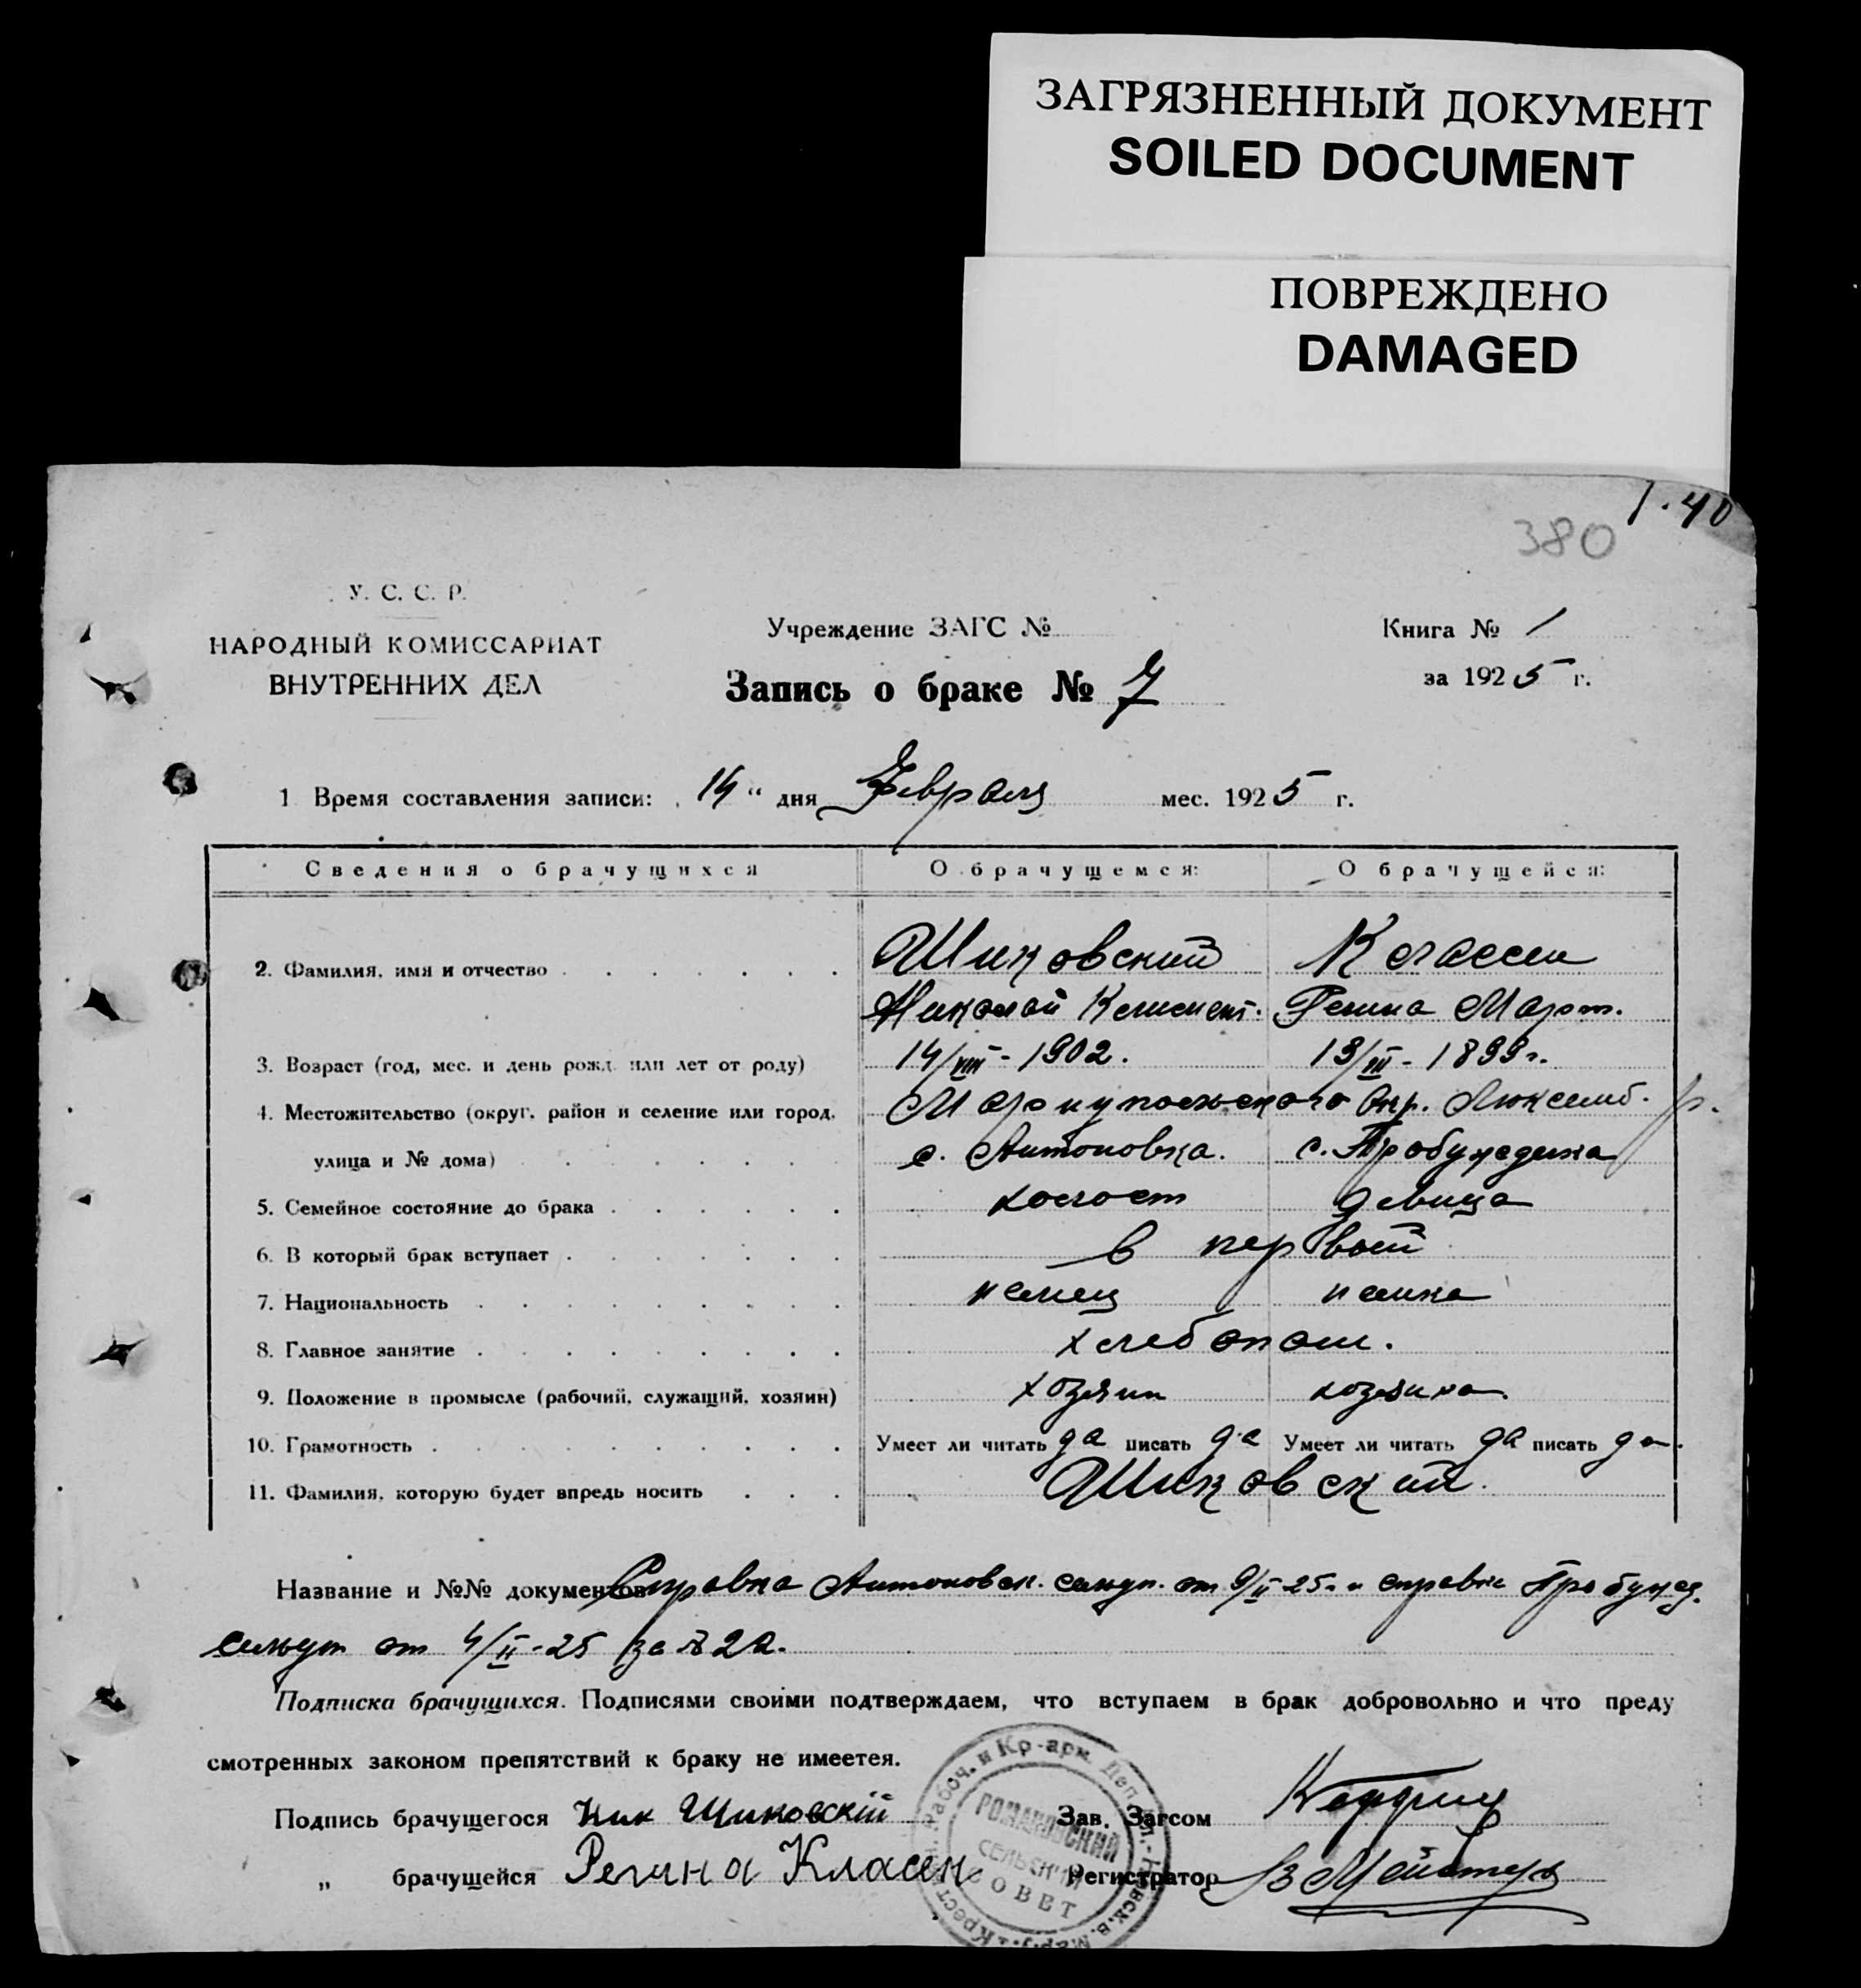 ЗАГРЯЗНЕННЫЙ ДОКУМЕНТ
SOILED DOCUMENT
ПОВРЕЖДЕНО
DAMAGED
1.40
380
У. С. С. Р.
НАРОДНЫЙ КОМИССАРИАТ
ВНУТРЕННИХ ДЕЛ
Учреждение ЗАГС №
Запись о браке № 7
Книга № 1
за 1925 г.
1 Время составления записи: 14 " дня Февраля мес. 1925 г.
Сведения о брачущихся О брачущемся: О брачущейся:
2. Фамилия, имя и отчество Шиковский Классен
Николай Климент. Регина Март.
3. Возраст (год, мес. и день рожд. или лет от роду) 14/VIII - 1902. 13/III - 1899 г.
4. Местожительство (округ, район и селение или город, Мариупольского Окр. Люксемб. р.
улица и № дома) с. Антоновка. с. Пробужедика
5. Семейное состояние до брака холост девица
6. В который брак вступает в первый
7. Национальность немец немка
8. Главное занятие хлебопаш.
9. Положение в промысле (рабочий, служащий, хозяин) хозяин хозяйка.
10. Грамотность Умеет ли читать да писать да Умеет ли читать да писать да.
11. Фамилия, которую будет впредь носить Шиковский.
Название и №№ документов Справка Антоновск. сельуп. от 9/II 25 г. и справка Пробужд.
сельуп от 4/II - 25 за № 22.
Подписка брачущихся. Подписями своими подтверждаем, что вступаем в брак добровольно и что преду
смотренных законом препятствий к браку не имеетея.
Подпись брачущегося Ник Шиковскій Зав. Загсом
„ брачущейся Регина Класен Регистратор В Мейстер
РОМАНОВСКИЙ
СЕЛЬСКИЙ
СОВЕТ